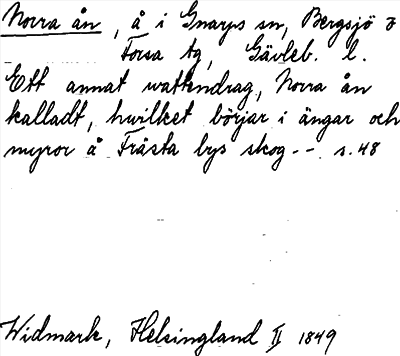 Norra ån, å i Gnarps sn, Bergsjö o
Forsa tg, Gävleb. l.
Ett annat wattendrag, Norra ån
kalladt, hwilket börjar i ängar och
myror å Frästa bys skog -- s. 48
Widmark, Helsingland II 1849